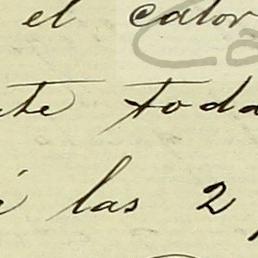 el calor
te toda
i las 2